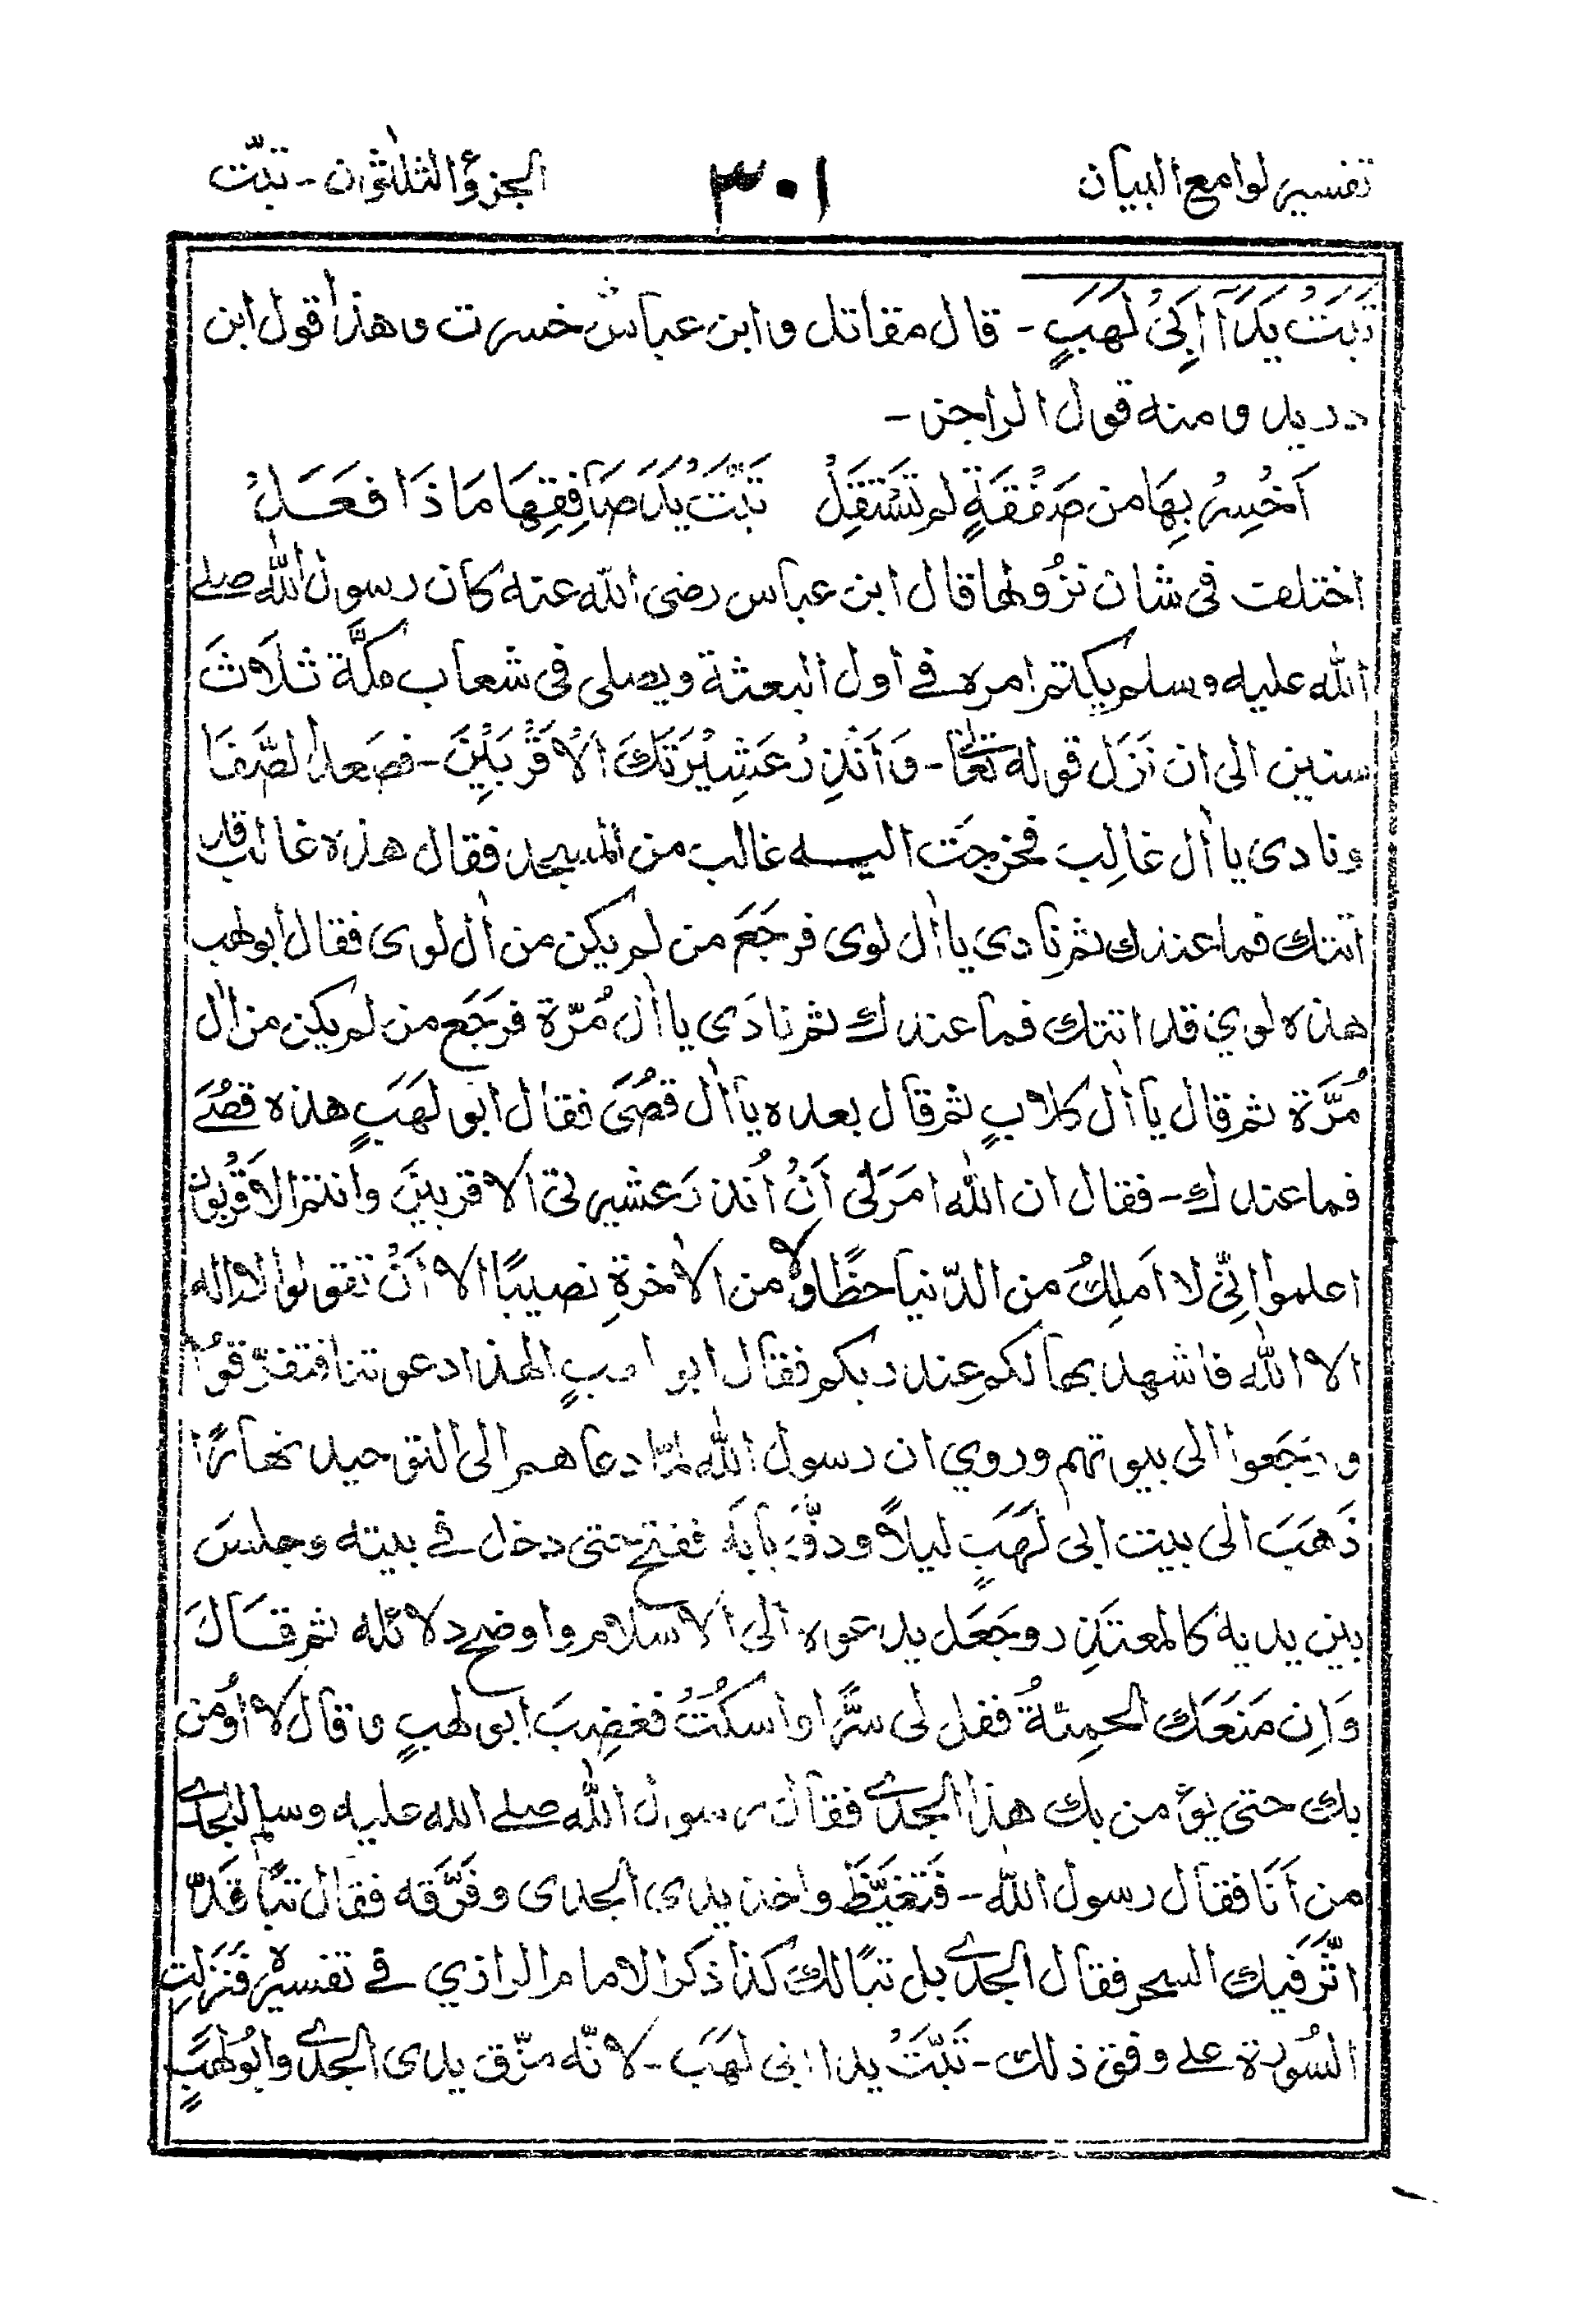 تفسير لوامع البيان
٣٠١
الجزؤ الثلٰثون - تبّت
تَبَتْ يَدَآ اَبِىْ لَهَبٍ - قال مقاتل وابن عباسؓ خسرت وهذا قول ابن
دريد ومنه قول الراجز -
اَخْسِرْ بِهَا من صَفْقَةٍ لم تَسْتَقِلْ تَبَّتْ يَدَ صَافِقِهَا مَا ذَا فَعَلْ
اختلف فى شان نزُولها قال ابن عباس رضى الله عنه كان رسول الله صلے
الله عليه وسلم يكتم امره فے اول البعثة ويصلى فى شعاب مكَّة ثلَاثَ
سنين الى ان نَزَل قوله تعَا - وَاَنْذِرْ عَشِيْرَتَكَ الْاَقْرَبِيْنَ - فصَعد الصَّفَا
ونادى يا اٰل غالِب فخرجَت اليه غالب من المسجد فقال هذه غالب قد
اتتك فما عندك ثم نادى يا اٰل لوى فرجَعَ من لم يكن من اٰل لوى فقال ابو لهب
هذه لوي قد اتتك فما عندك ثم نادَى يا اٰل مُرّة فرَجَع من لم يكن من اٰل
مُرَّة ثم قال يا اٰل كلابٍ ثم قال بعده يا اٰل قصُىّ فقال ابو لهَبٍ هذه قصُے
فما عندك - فقال ان الله امَرَنى اَنْ اُنذرَ عشيرتى الاقربينَ وانتم الاقرَبون
اعلموا انّى لا اَملِكُ من الدّنيا حظًّا ولا من الاٰخرةِ نصيبًا الا اَنْ تقولوا لا اله
الا الله فاشهد بها لكم عند ربكم فقال ابو لهبٍ الهذا دعوتنا فتفرّقوُا
ورجَعوا الى بيوتهم وروي ان رسول الله لمّا دعاهم الى التوحيد نهارًا
ذَهَبَ الى بيت ابى لَهَبٍ ليلًا ودقَّ بابَه ففتح حتى دخل فے بيته وجلسَ
بين يديه كالمعتَذِر وجَعَل يدعوه الى الاسلام واوضح دلائله ثم قَالَ
وَاِن مَنَعَك الحمِئةُ فقل لى سرًّا واسكُتُ فغضِبَ ابو لهبٍ وقال لا اُؤمن
بك حتى يؤمن بك هذا الجدے فقال رسول الله صلے الله عليه وسلم للجدے
من اَنَا فقال رسول الله - فَتغيَّظَ واخذ يدى الجدى وفَرَّقه فقال تبًّا قَدّ
اثَّرَ فيك السحر فقال الجدے بل تبًّا لك كذا ذكر الامام الرازي فے تفسيره فَنَزلتِ
السُورة على وفق ذلك - تَبَّتْ يدا ابى لهَب - لانّه مزّق يدى الجدے وابُو لهَبٍ